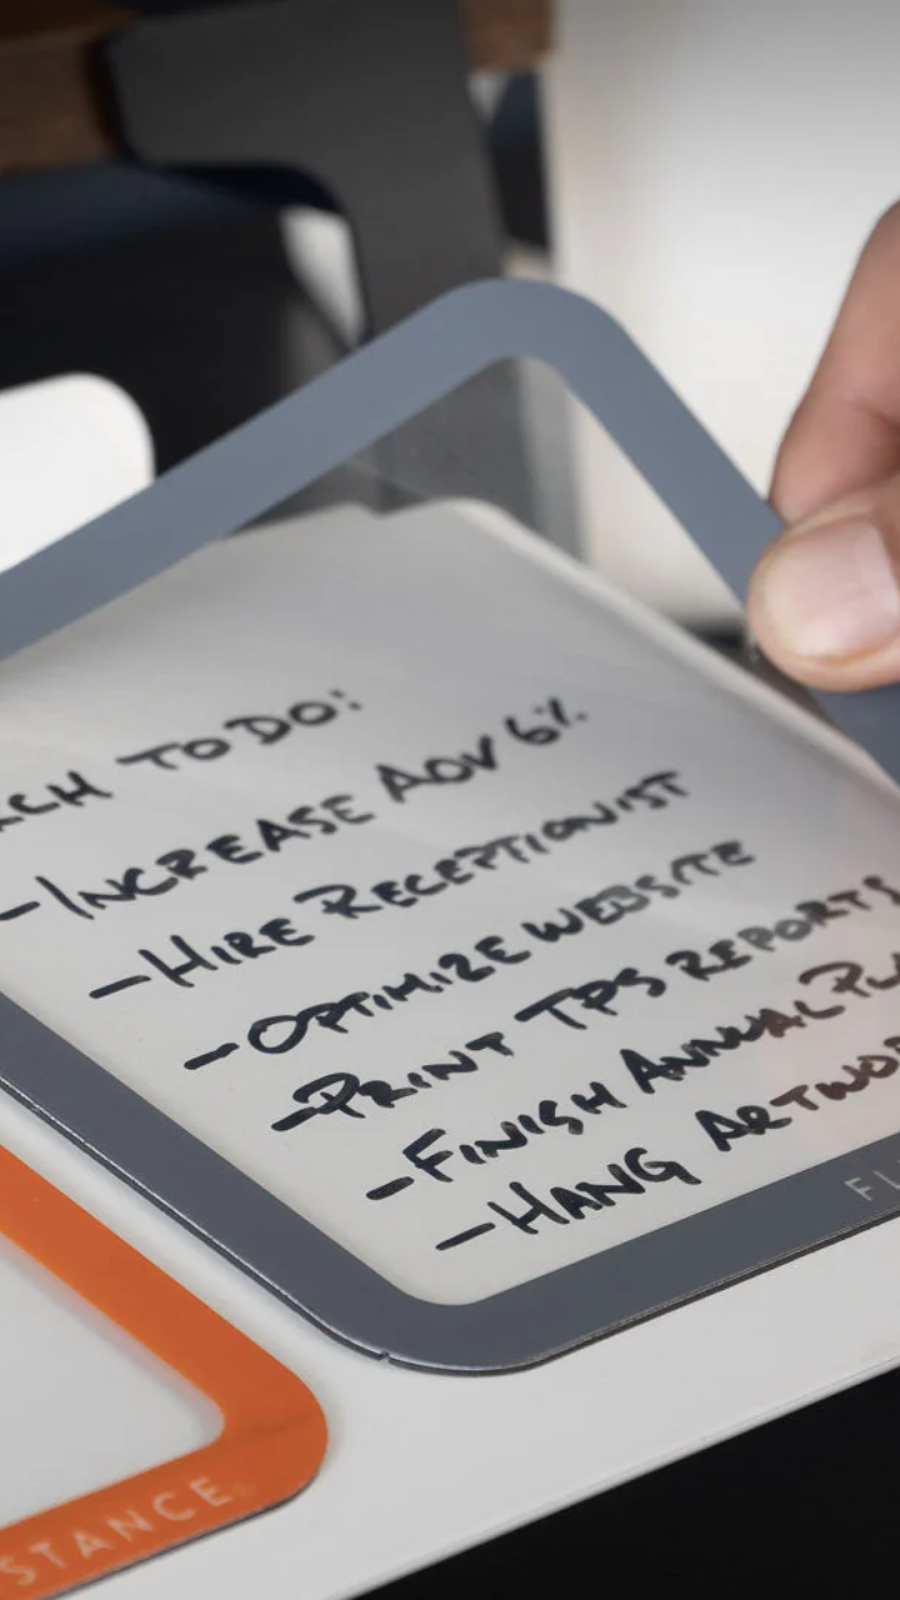 TO DO:
- INCREASE AOV 6%
- HIRE RECEPTIONIST
- OPTIMIZE WEBSITE
- PRINT TPS REPORTS
- FINISH ANNUAL
- HANG